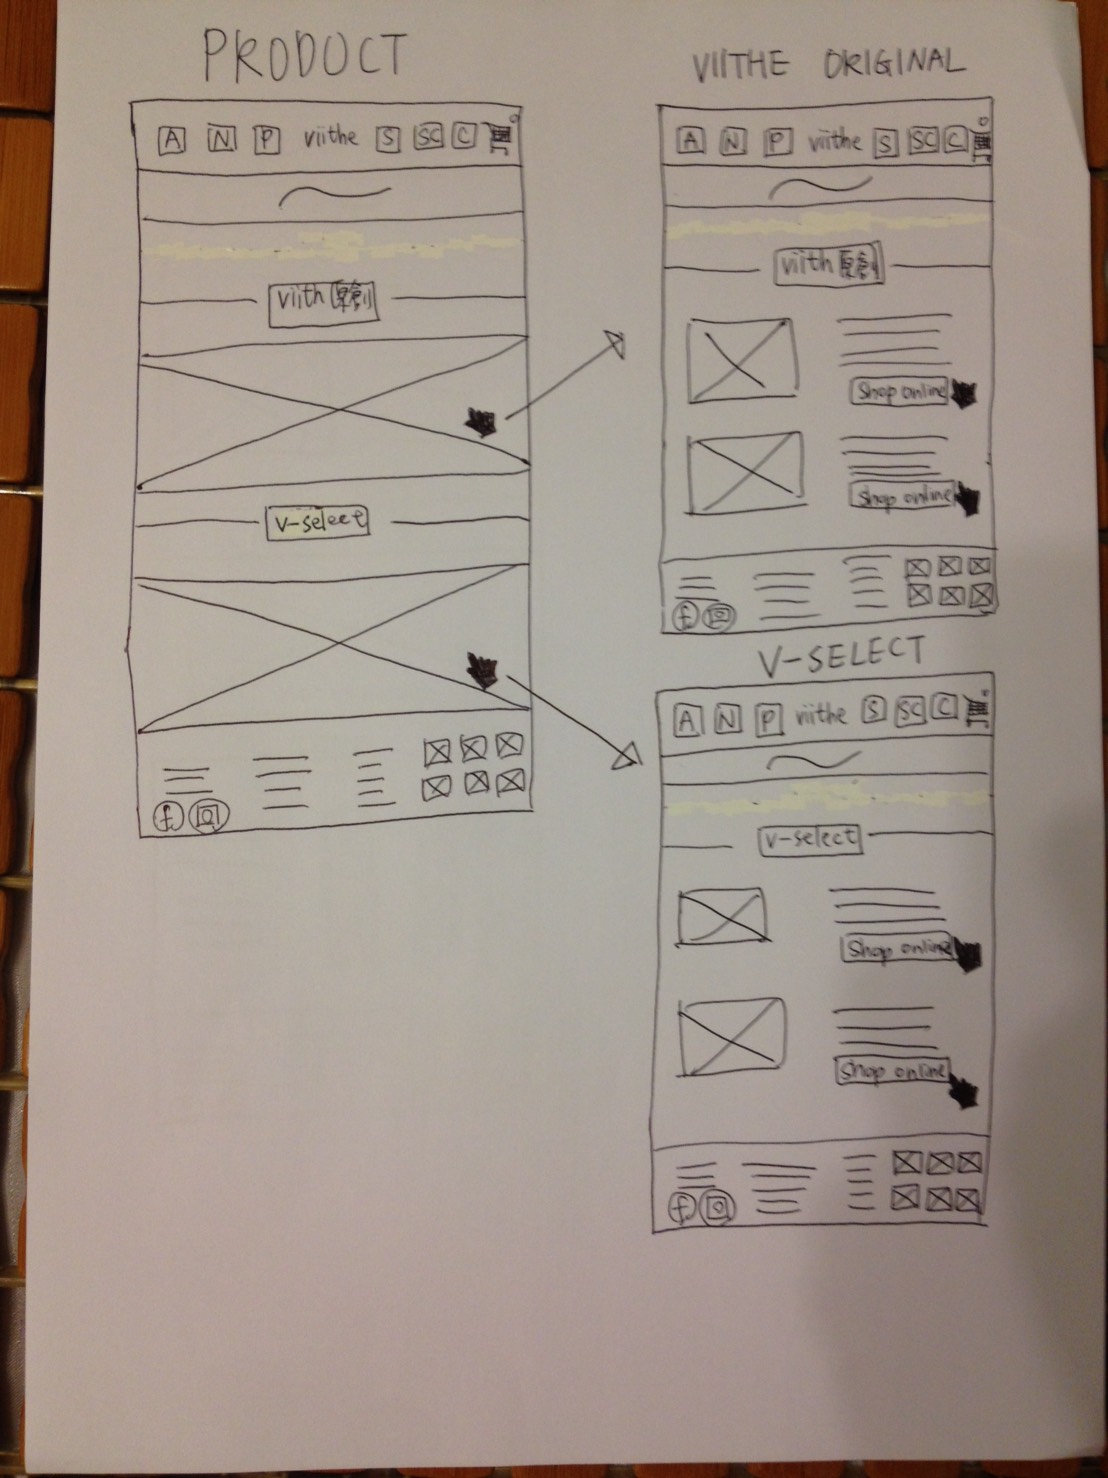 PRODUCT
A N P viithe S SC C
viith 原創
v-select
f
VIITHE ORIGINAL
A N P viithe S SC C
viith 原創
Shop online
Shop online
f
V-SELECT
A N P viithe S SC C
v-select
Shop online
Shop online
f